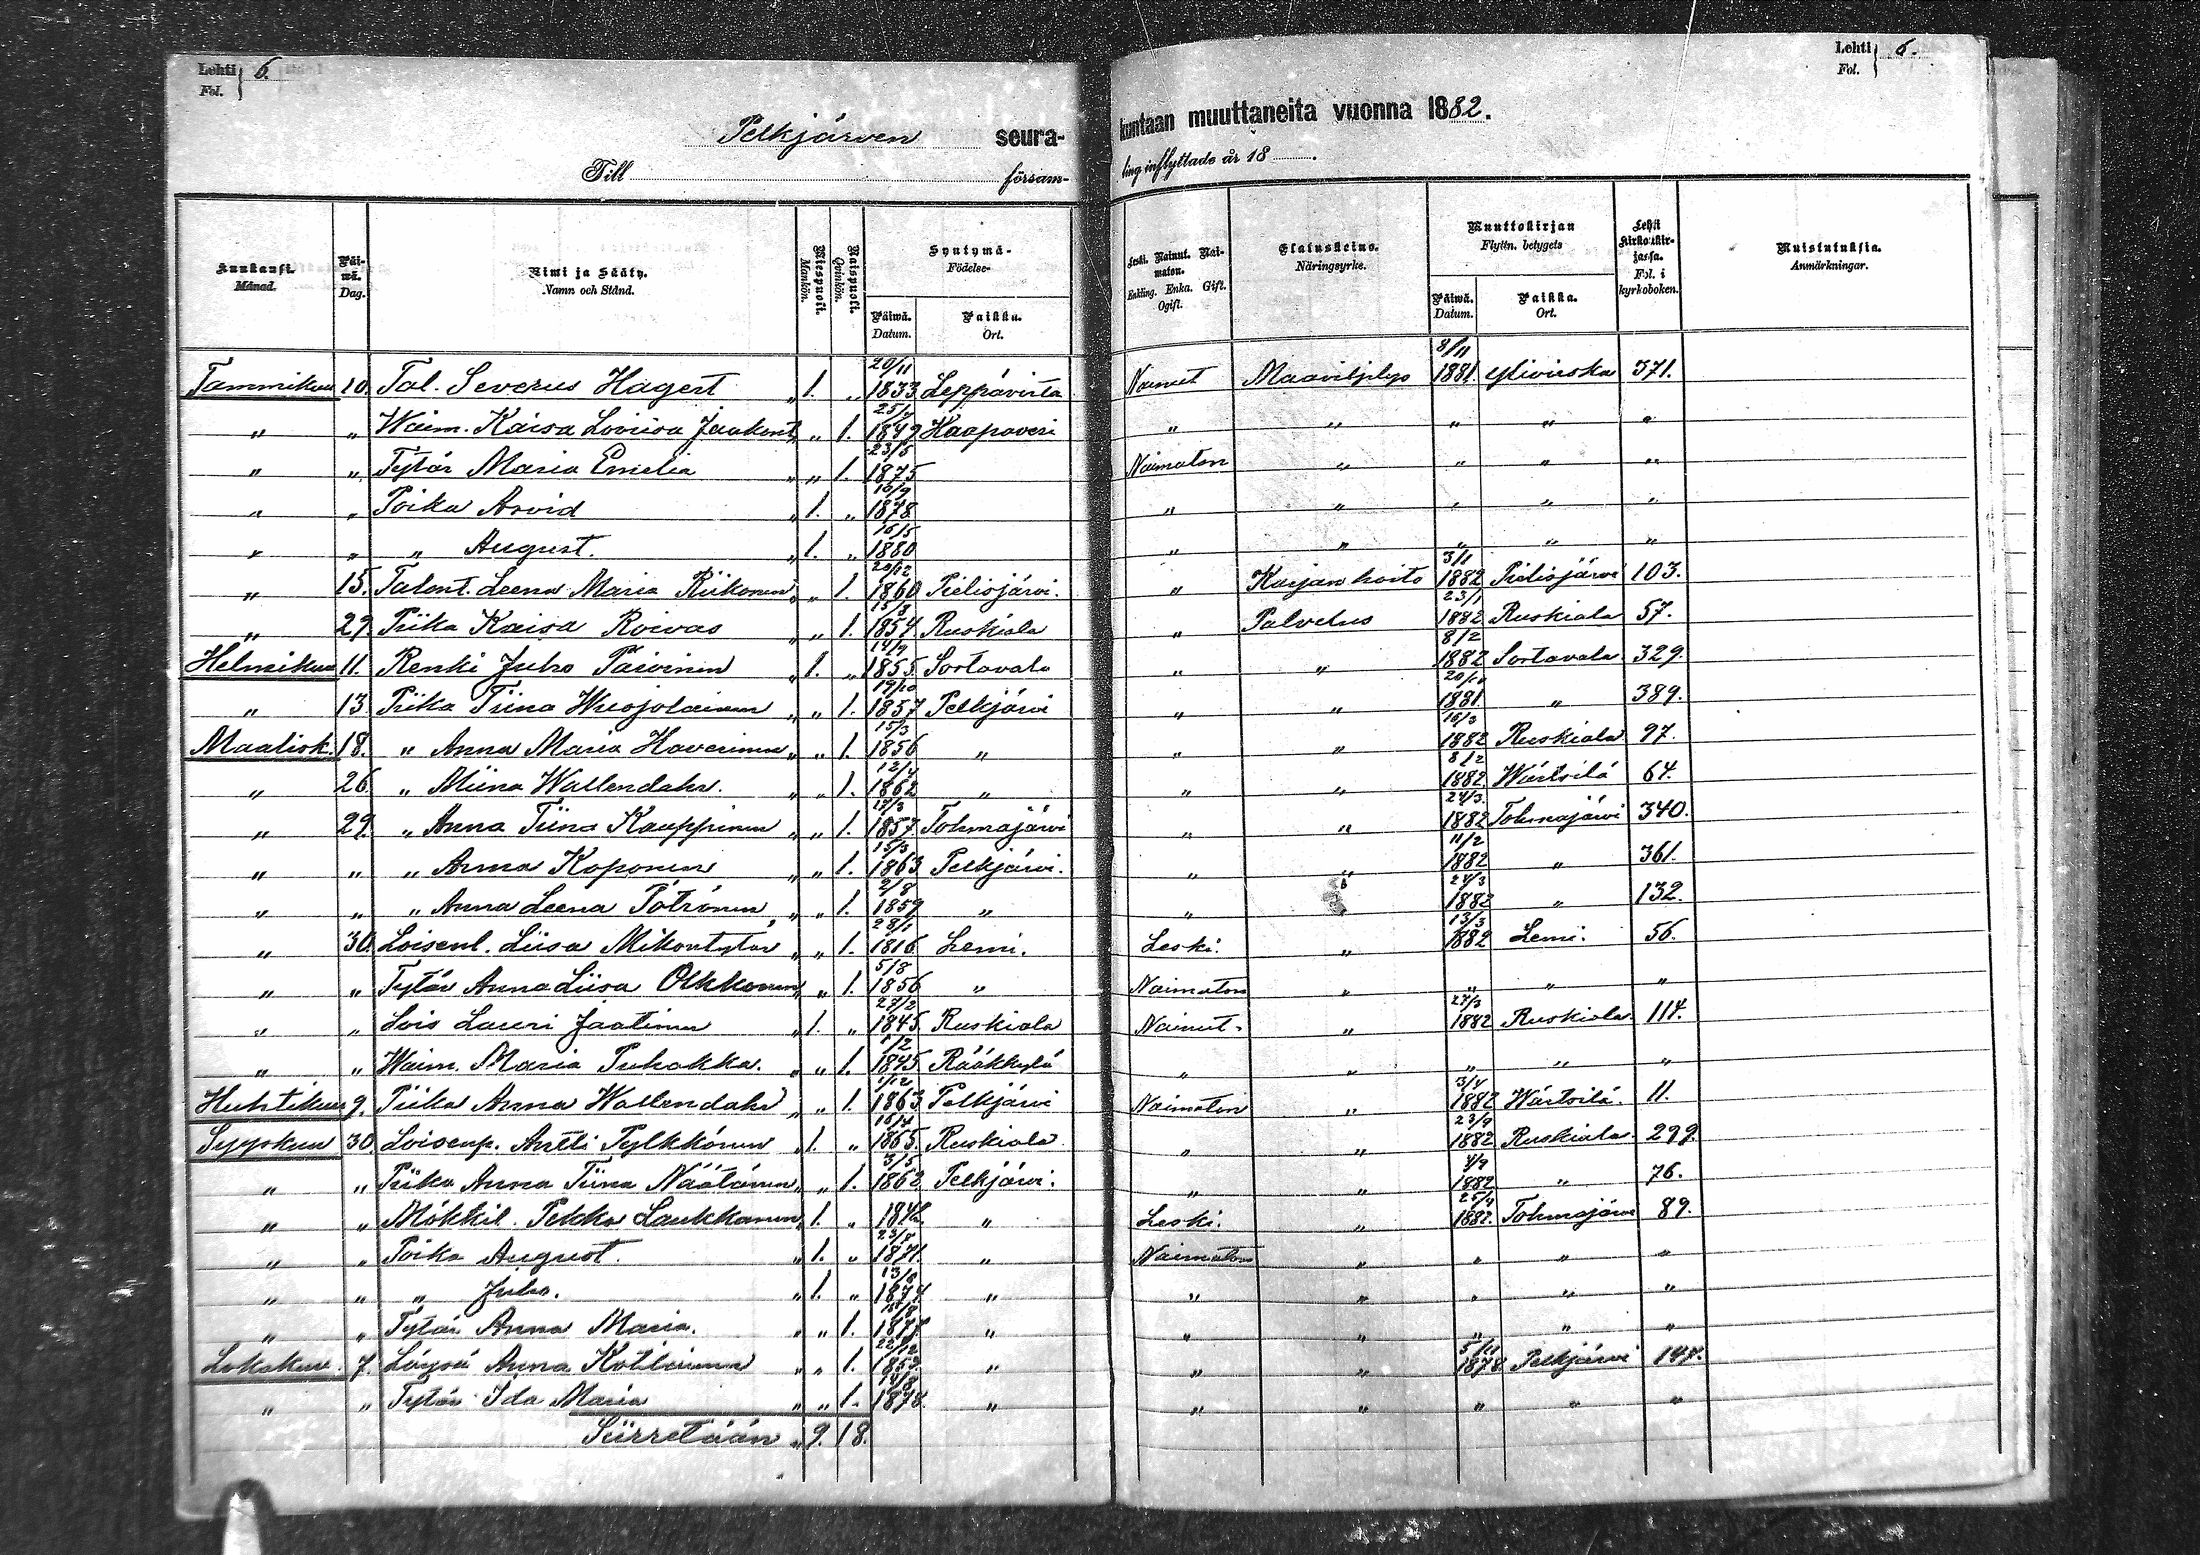 Lehti 6.
Fol.
Lehti 6.
Fol.
Pelkjärven seura- kuntaan muuttaneita vuonna 1882.
Till församling inflyttade år 18
Kuukausi. Månad. Päiwä. Dag. Nimi ja Sääty. Namn och Stånd. Miespuoli. Mankön. Naispuoli. Qvinkön. Syntymä- Födelse- Päiwä. Datum. Paikka. Ort. Leski. Nainut. Naimaton. Enkling. Enka. Gift. Ogift. Elatuskeino. Näringsyrke. Muuttokirjan Flyttn. betygets Päiwä. Datum. Paikka. Ort. Lehti kirkonkirjassa. Fol. i kyrkoboken. Muistutuksia. Anmärkningar.
Tammikuu 10. Tal. Severus Hagert „ 1. „ 20/11 1833 Leppävirta Nainut Maanviljelys 8/11 1881. Ylivieska 371.
„ „ Waim. Kaisa Loviisa „ „ 1. 1849 Haapaveri „ „ „ „ „
„ „ Tytär Maria Emelia „ „ 1. 23/5 1875 Naimaton „ „ „ „
„ „ Poika Arvid „ 1. „ 16/9 1878 „ „ „ „ „
„ „ „ August. „ 1. „ 16/5 1880 „ „ „ „ „
„ 15. Talont. Leena Maria Riikonen „ „ 1. 20/12 1860 Pielisjärvi. „ Karjan hoito 3/1 1882 Pielisjärvi 103.
„ 29. Piika Kaisa Roivas „ „ 1. 15/8 1854 Ruskiala „ Palvelus 23/1 1882 Ruskiala 57.
Helmikuu 11. Renki Juho Päivinen „ 1. „ 14/9 1855. Sortavala „ „ 8/2 1882 Sortavala 329.
„ 13. Piika Tiina Wuojolainen „ „ 1. 19/10 1857 Pelkjärvi „ „ 1881. „ 389.
Maalisk. 18. „ Anna Maria Haverinen „ „ 1. 15/3 1856 „ „ „ 16/3 1882 Ruskiala 97.
„ 26. „ Miina Wallendahr. „ „ 1. 12/4 1862 „ „ „ 8/2 1882 Wärtsilä 64.
„ 29. „ Anna Tiina Kauppinen „ „ 1. 1857 Tohmajärvi „ „ 24/3 1882 Tohmajärvi 340.
„ „ „ Anna Koponen „ „ 1. 15/3 1863 Pelkjärvi. „ „ 11/2 1882 „ 361.
„ „ „ Anna Leena Pötrönen „ „ 1. 2/8 1859 „ „ „ 24/3 1882 „ 132.
„ 30. Loisenl. Liisa Mikontytär „ „ 1. 28/1 1816 Lemi. Leski. „ 13/3 1882 Lemi. 56.
„ „ Tytär Anna Liisa Olkkonen „ „ 1. 5/8 1856 „ Naimaton „ „ „ „
„ „ Lois Lauri Jaatinen „ 1. „ 27/2 1845 Ruskiala Nainut. „ 27/3 1882 Ruskiala 114.
„ „ Waim. Maria Puhakka. „ „ 1. 1845 Rääkkylä „ „ „ „ „
Huhtikuu 9. Piika Anna Wallendahr „ „ 1. 1/12 1863 Pelkjärvi Naimaton „ 3/4 1882 Wärtsilä. 11.
Syyskuu 30. Loisenp. Antti Pylkkönen „ 1. „ 16/4 1865 Ruskiala „ „ 23/9 1882 Ruskiala. 299.
„ „ Piika Anna Tiina Näätänen „ „ 1. 3/5 1862 Pelkjärvi. „ „ 4/9 1882 „ 76.
„ „ Mökkil. Pekka Laukkanen „ 1. „ „ Leski. „ 25/4 1882. Tohmajärvi 89.
„ „ Poika August. „ 1. „ 1871. „ Naimaton „ „ „ „
„ „ „ Juho. „ 1. „ 13/8 1874 „ „ „ „ „ „
„ „ Tytär Anna Maria. „ „ 1. 1877 „ „ „ „ „ „
Lokakuu. 7. Löysä Anna Kottarinen „ „ 1. 22/12 1852 „ „ „ 1878. Pelkjärvi 147.
„ „ Tytär Ida Maria „ „ 1. 14/8 1878. „ „ „ „ „ „
Siirretään „ 9. 18.